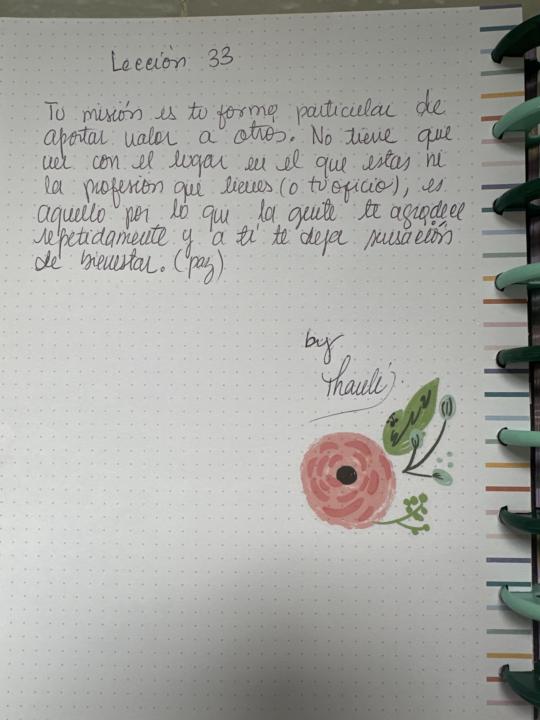 Lección 33
Tu misión es tu forma particular de
aportar valor a otros. No tiene que
ver con el lugar en el que estas ni
la profesión que tienes (o tu oficio), es
aquello por lo que la gente te agradece
repetidamente y a ti te deja sensación
de bienestar. (paz)
by